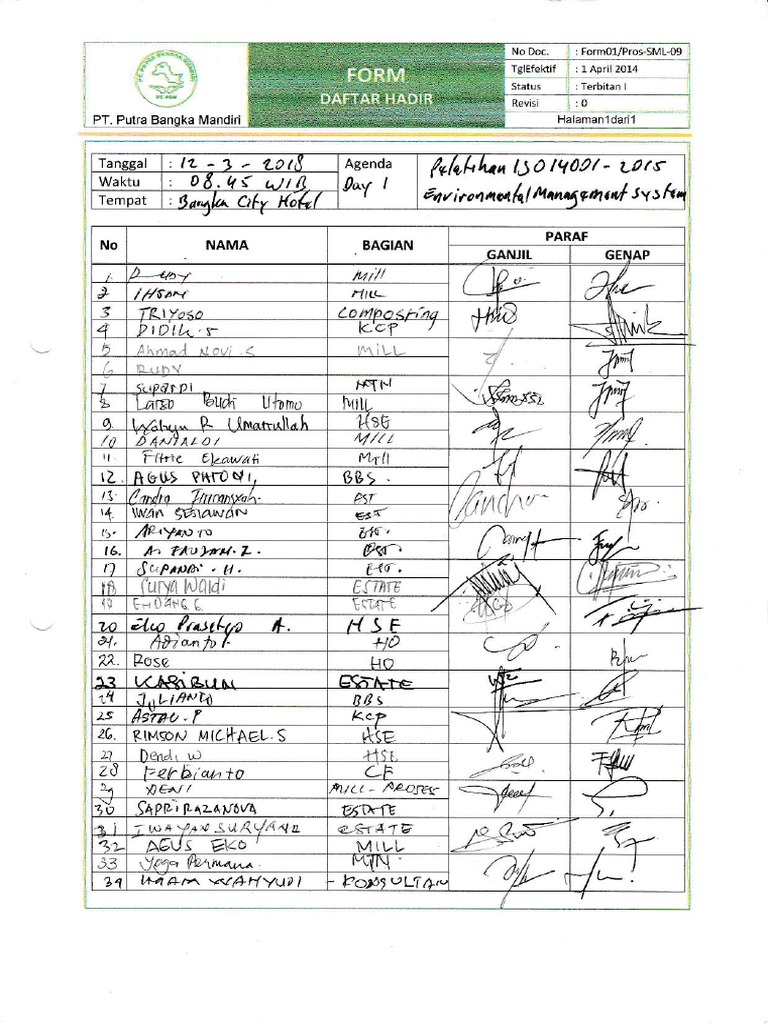 PT. PUTRA BANGKA MANDIRI
PT. PBM
PT. Putra Bangka Mandiri
FORM
DAFTAR HADIR
No Doc. : Form01/Pros-SML-09
TglEfektif : 1 April 2014
Status : Terbitan I
Revisi : 0
Halaman1dari1
Tanggal : 12 - 3 - 2018 Agenda Pelatihan ISO 14001 - 2015
Waktu : 08.45 WIB Day 1 Environmental Management System
Tempat : Bangka City Hotel
No NAMA BAGIAN PARAF
GANJIL GENAP
1 Mill
2 IHSAN MILL
3 TRIYOSO Composting
4 DIDIK.S KCP
5 Ahmad Novi.S MILL
6 RUDY
7 SUPARDI MTN
8 Budi Utomo MILL
9. Wahyu R Umatullah HSE
10 DANIALDI MILL
11. Fitrie Ekawati Mill
12. AGUS PATONI, BBS.
13. Candra EST
14. IWAN SETIAWAN EST
15. ARIYANTO EST.
16. A. FAUZAN. Z. EST.
17 SUPANDI . H. EST.
18 Surya Waldi ESTATE
19 ENDANG G. ESTATE
20 Eko Prasetyo A. HSE
21. Adianto. HO
22. ROSE HO
23 KASIBUN ESTATE
24 JULIANTO BBS
25 ASTAU.P KCP
26. RIMSON MICHAEL.S HSE
27 Dendi W HSE
28 Ferbianto CF
29 DENI MILL - PROSES
30 SAPRIRAZANOVA ESTATE
31 I WAYAN SURYANA ESTATE
32 AGUS EKO MILL
33 Yoga Permana. MTN
34 IMAM WAHYUDI - KONSULTAN